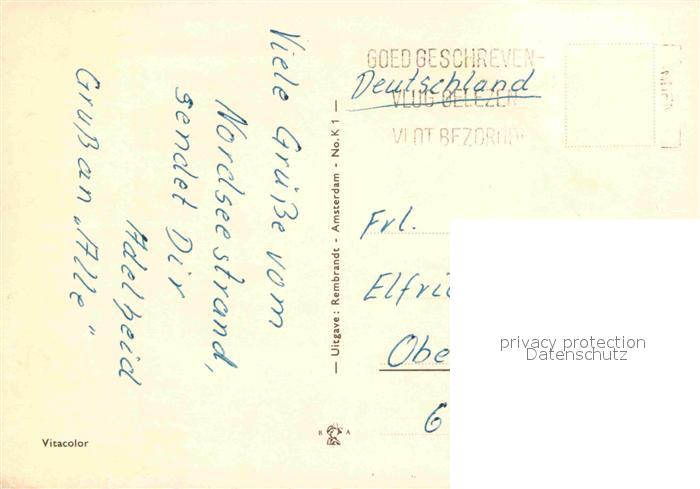 Viele Grüße vom
Nordseestrand,
sendet Dir
Adelheid
Gruß an „Alle"
Vitacolor
— Uitgave: Rembrandt - Amsterdam - No. K 1 —
R A
GOED GESCHREVEN-
Deutschland
VLUG GELEZEN
VLOT BEZORGD!
Frl.
privacy protection
Datenschutz
6